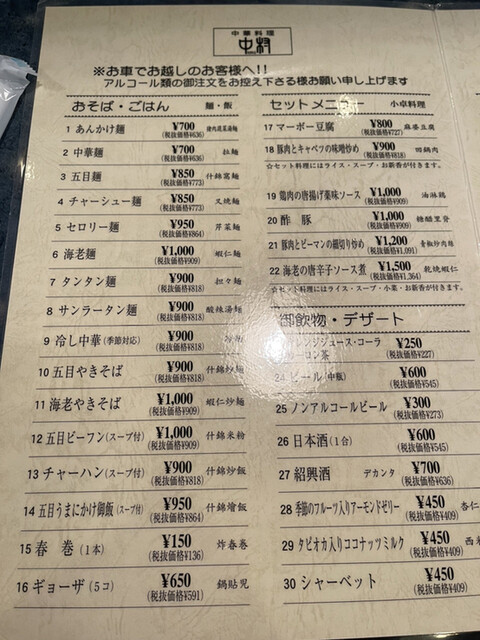 中華料理
中村
※お車でお越しのお客様へ!!
アルコール類の御注文をお控え下さる様お願い申し上げます
おそば・ごはん 麺・飯
1 あんかけ麺 ¥700 (税抜価格¥636)
2 中華麺 ¥700 (税抜価格¥636) 拉麺
3 五目麺 ¥850 (税抜価格¥773) 什錦窩麺
4 チャーシュー麺 ¥850 (税抜価格¥773) 叉焼麺
5 セロリー麺 ¥950 (税抜価格¥864) 芹菜麺
6 海老麺 ¥1,000 (税抜価格¥909) 蝦仁麺
7 タンタン麺 ¥900 (税抜価格¥818) 担々麺
8 サンラータン麺 ¥900 (税抜価格¥818) 酸辣湯麺
9 冷し中華(季節対応) ¥900 (税抜価格¥818)
10 五目やきそば ¥900 (税抜価格¥818) 什錦炒麺
11 海老やきそば ¥1,000 (税抜価格¥909) 蝦仁炒麺
12 五目ビーフン(スープ付) ¥1,000 (税抜価格¥909) 什錦米粉
13 チャーハン(スープ付) ¥900 (税抜価格¥818) 什錦炒飯
14 五目うまにかけ御飯(スープ付) ¥950 (税抜価格¥864) 什錦燴飯
15 春巻(1本) ¥150 (税抜価格¥136) 炸春巻
16 ギョーザ(5コ) ¥650 (税抜価格¥591) 鍋貼
セットメニュー 小卓料理
17 マーボー豆腐 ¥800 (税抜価格¥727) 麻婆豆腐
18 豚肉とキャベツの味噌炒め ¥900 (税抜価格¥818) 回鍋肉
☆セット料理にはライス・スープ・お新香が付きます。
19 鶏肉の唐揚げ薬味ソース ¥1,000 (税抜価格¥909) 油淋鶏
20 酢豚 ¥1,000 (税抜価格¥909) 糖醋里脊
21 豚肉とピーマンの細切り炒め ¥1,200 (税抜価格¥1,091) 青椒炒肉絲
22 海老の唐辛子ソース煮 ¥1,500 (税抜価格¥1,364) 乾焼蝦仁
☆セット料理にはライス・スープ・小菜・お新香が付きます。
御飲物・デザート
レンジジュース・コーラ
ーロン茶 ¥250 (税抜価格¥227)
24 ビール(中瓶) ¥600 (税抜価格¥545)
25 ノンアルコールビール ¥300 (税抜価格¥273)
26 日本酒(1合) ¥600 (税抜価格¥545)
27 紹興酒 デカンタ ¥700 (税抜価格¥636)
28 季節のフルーツ入りアーモンドゼリー ¥450 (税抜価格¥409) 杏仁
29 タピオカ入りココナッツミルク ¥450 (税抜価格¥409) 西米
30 シャーベット ¥450 (税抜価格¥409)